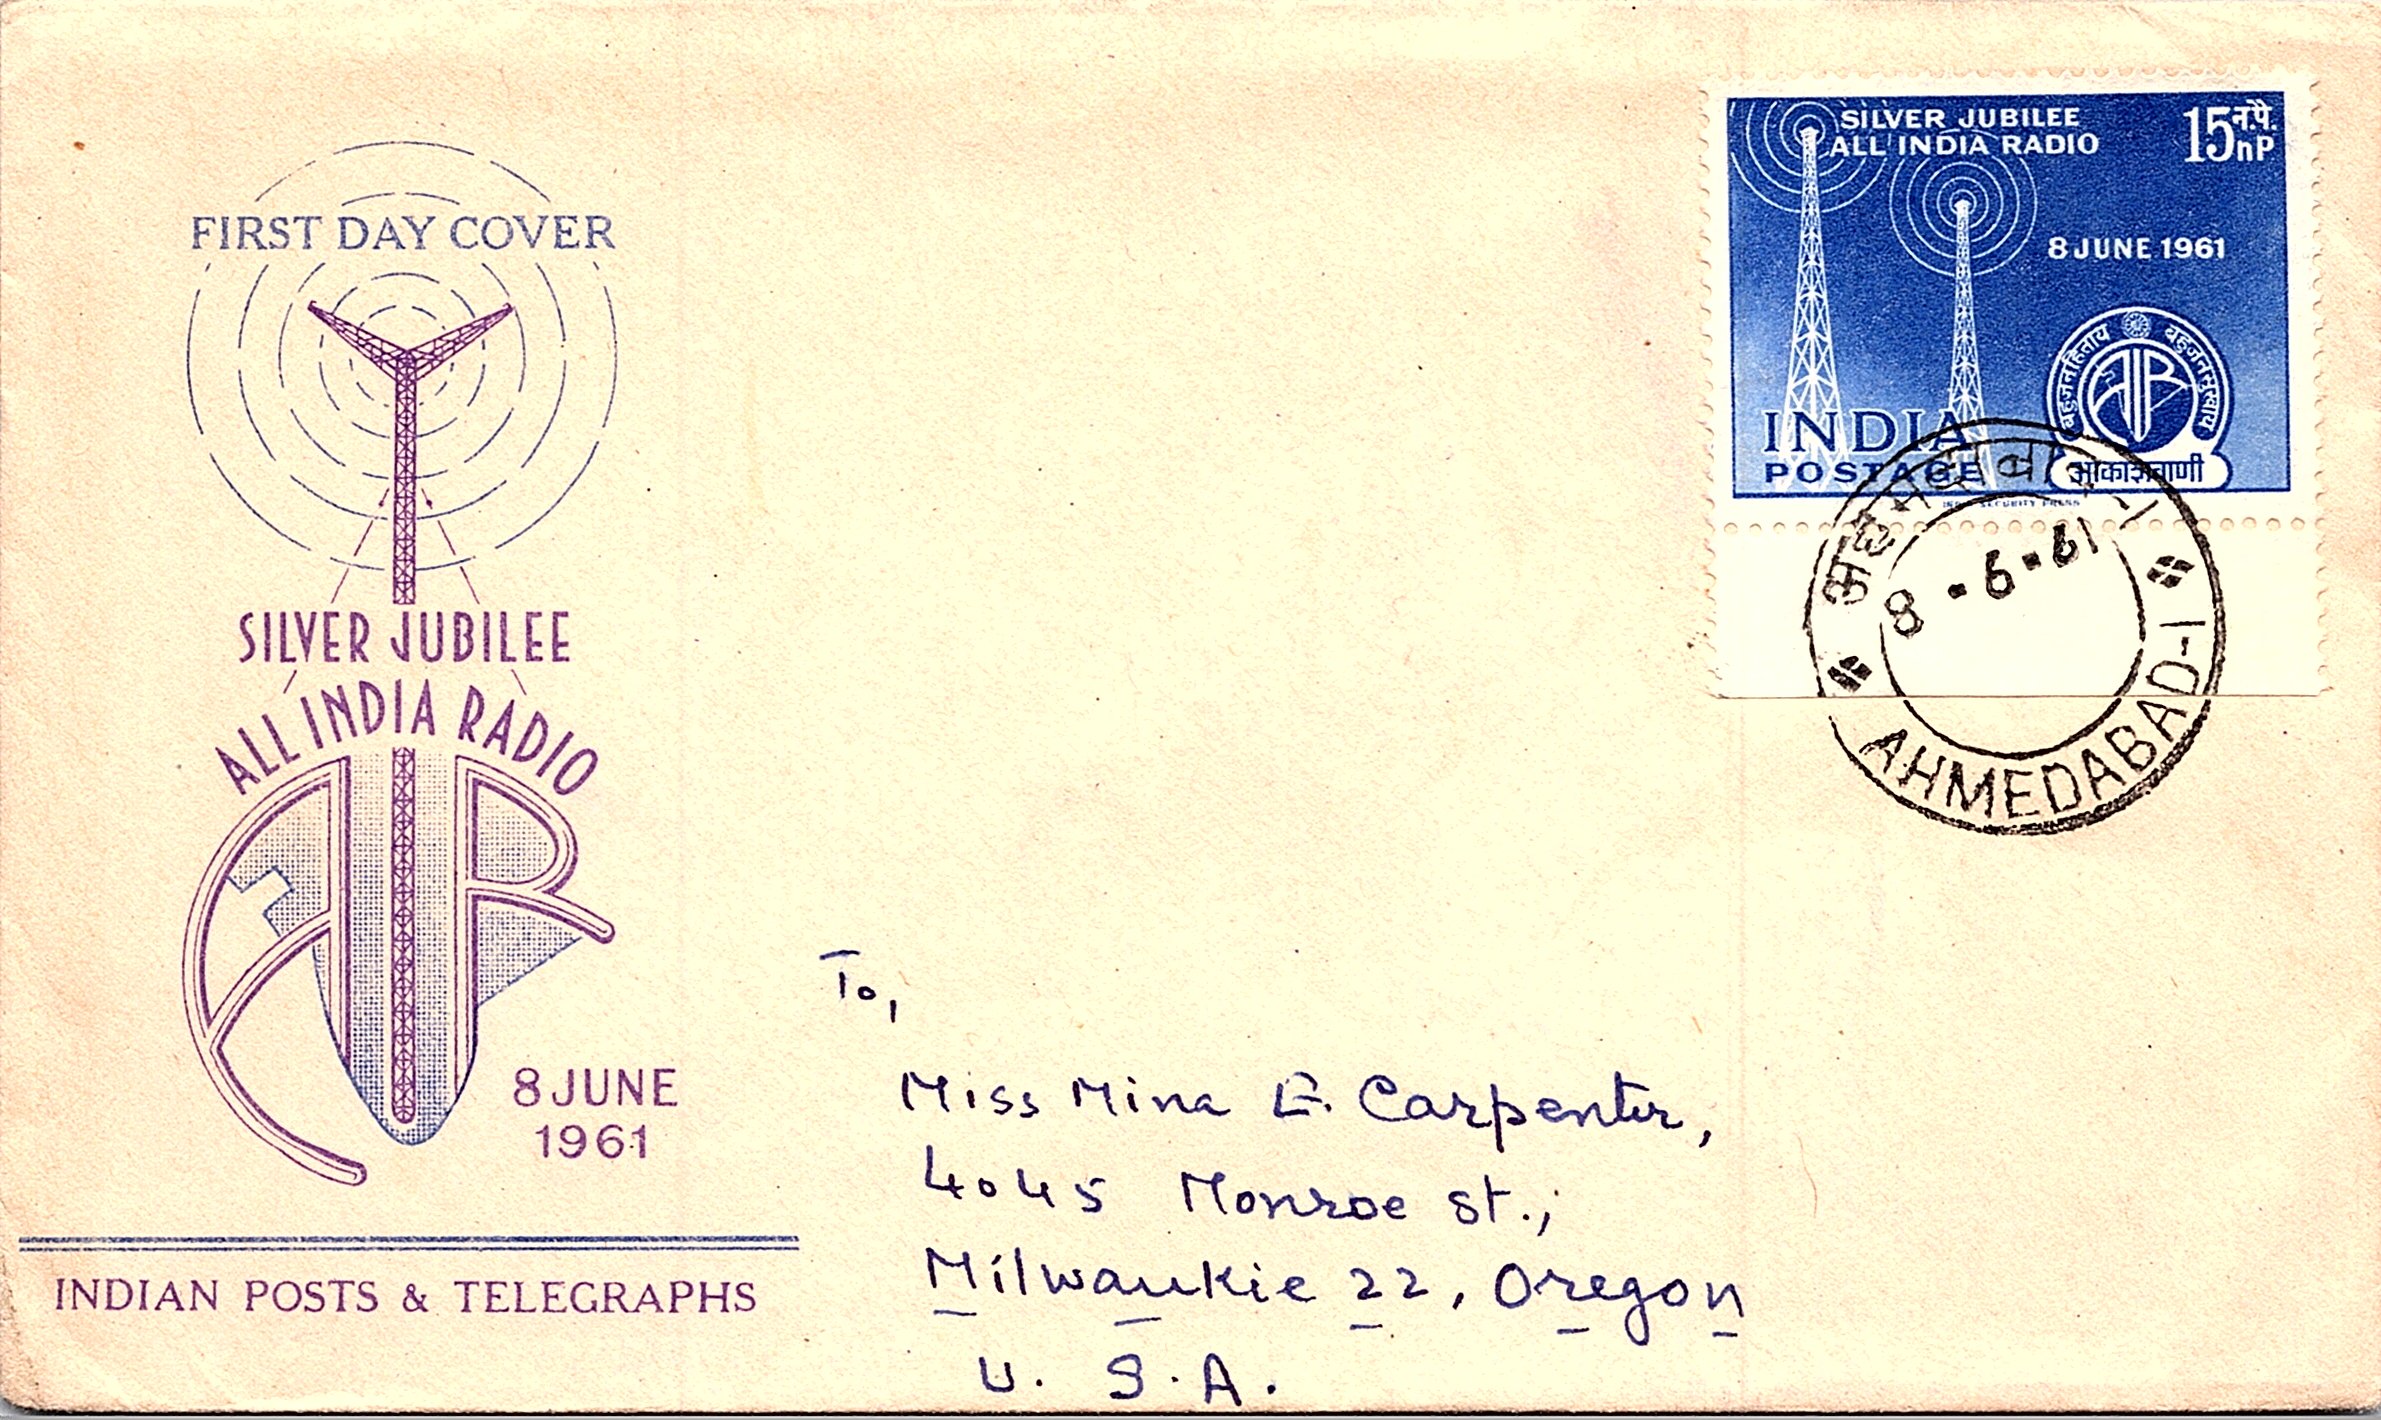 FIRST DAY COVER
SILVER JUBILEE
ALL INDIA RADIO
AIR
8 JUNE
1961
INDIAN POSTS & TELEGRAPHS
SILVER JUBILEE
ALL INDIA RADIO
15 न.पै.
nP
8 JUNE 1961
बहुजनहिताय बहुजनसुखाय
AIR
आकाशवाणी
INDIA
POSTAGE
INDIA SECURITY PRESS
अहमदाबाद-1
8.6.61
AHMEDABAD-1
To,
Miss Mina E. Carpenter,
4045 Monroe St.,
Milwaukie 22, Oregon
U. S. A.